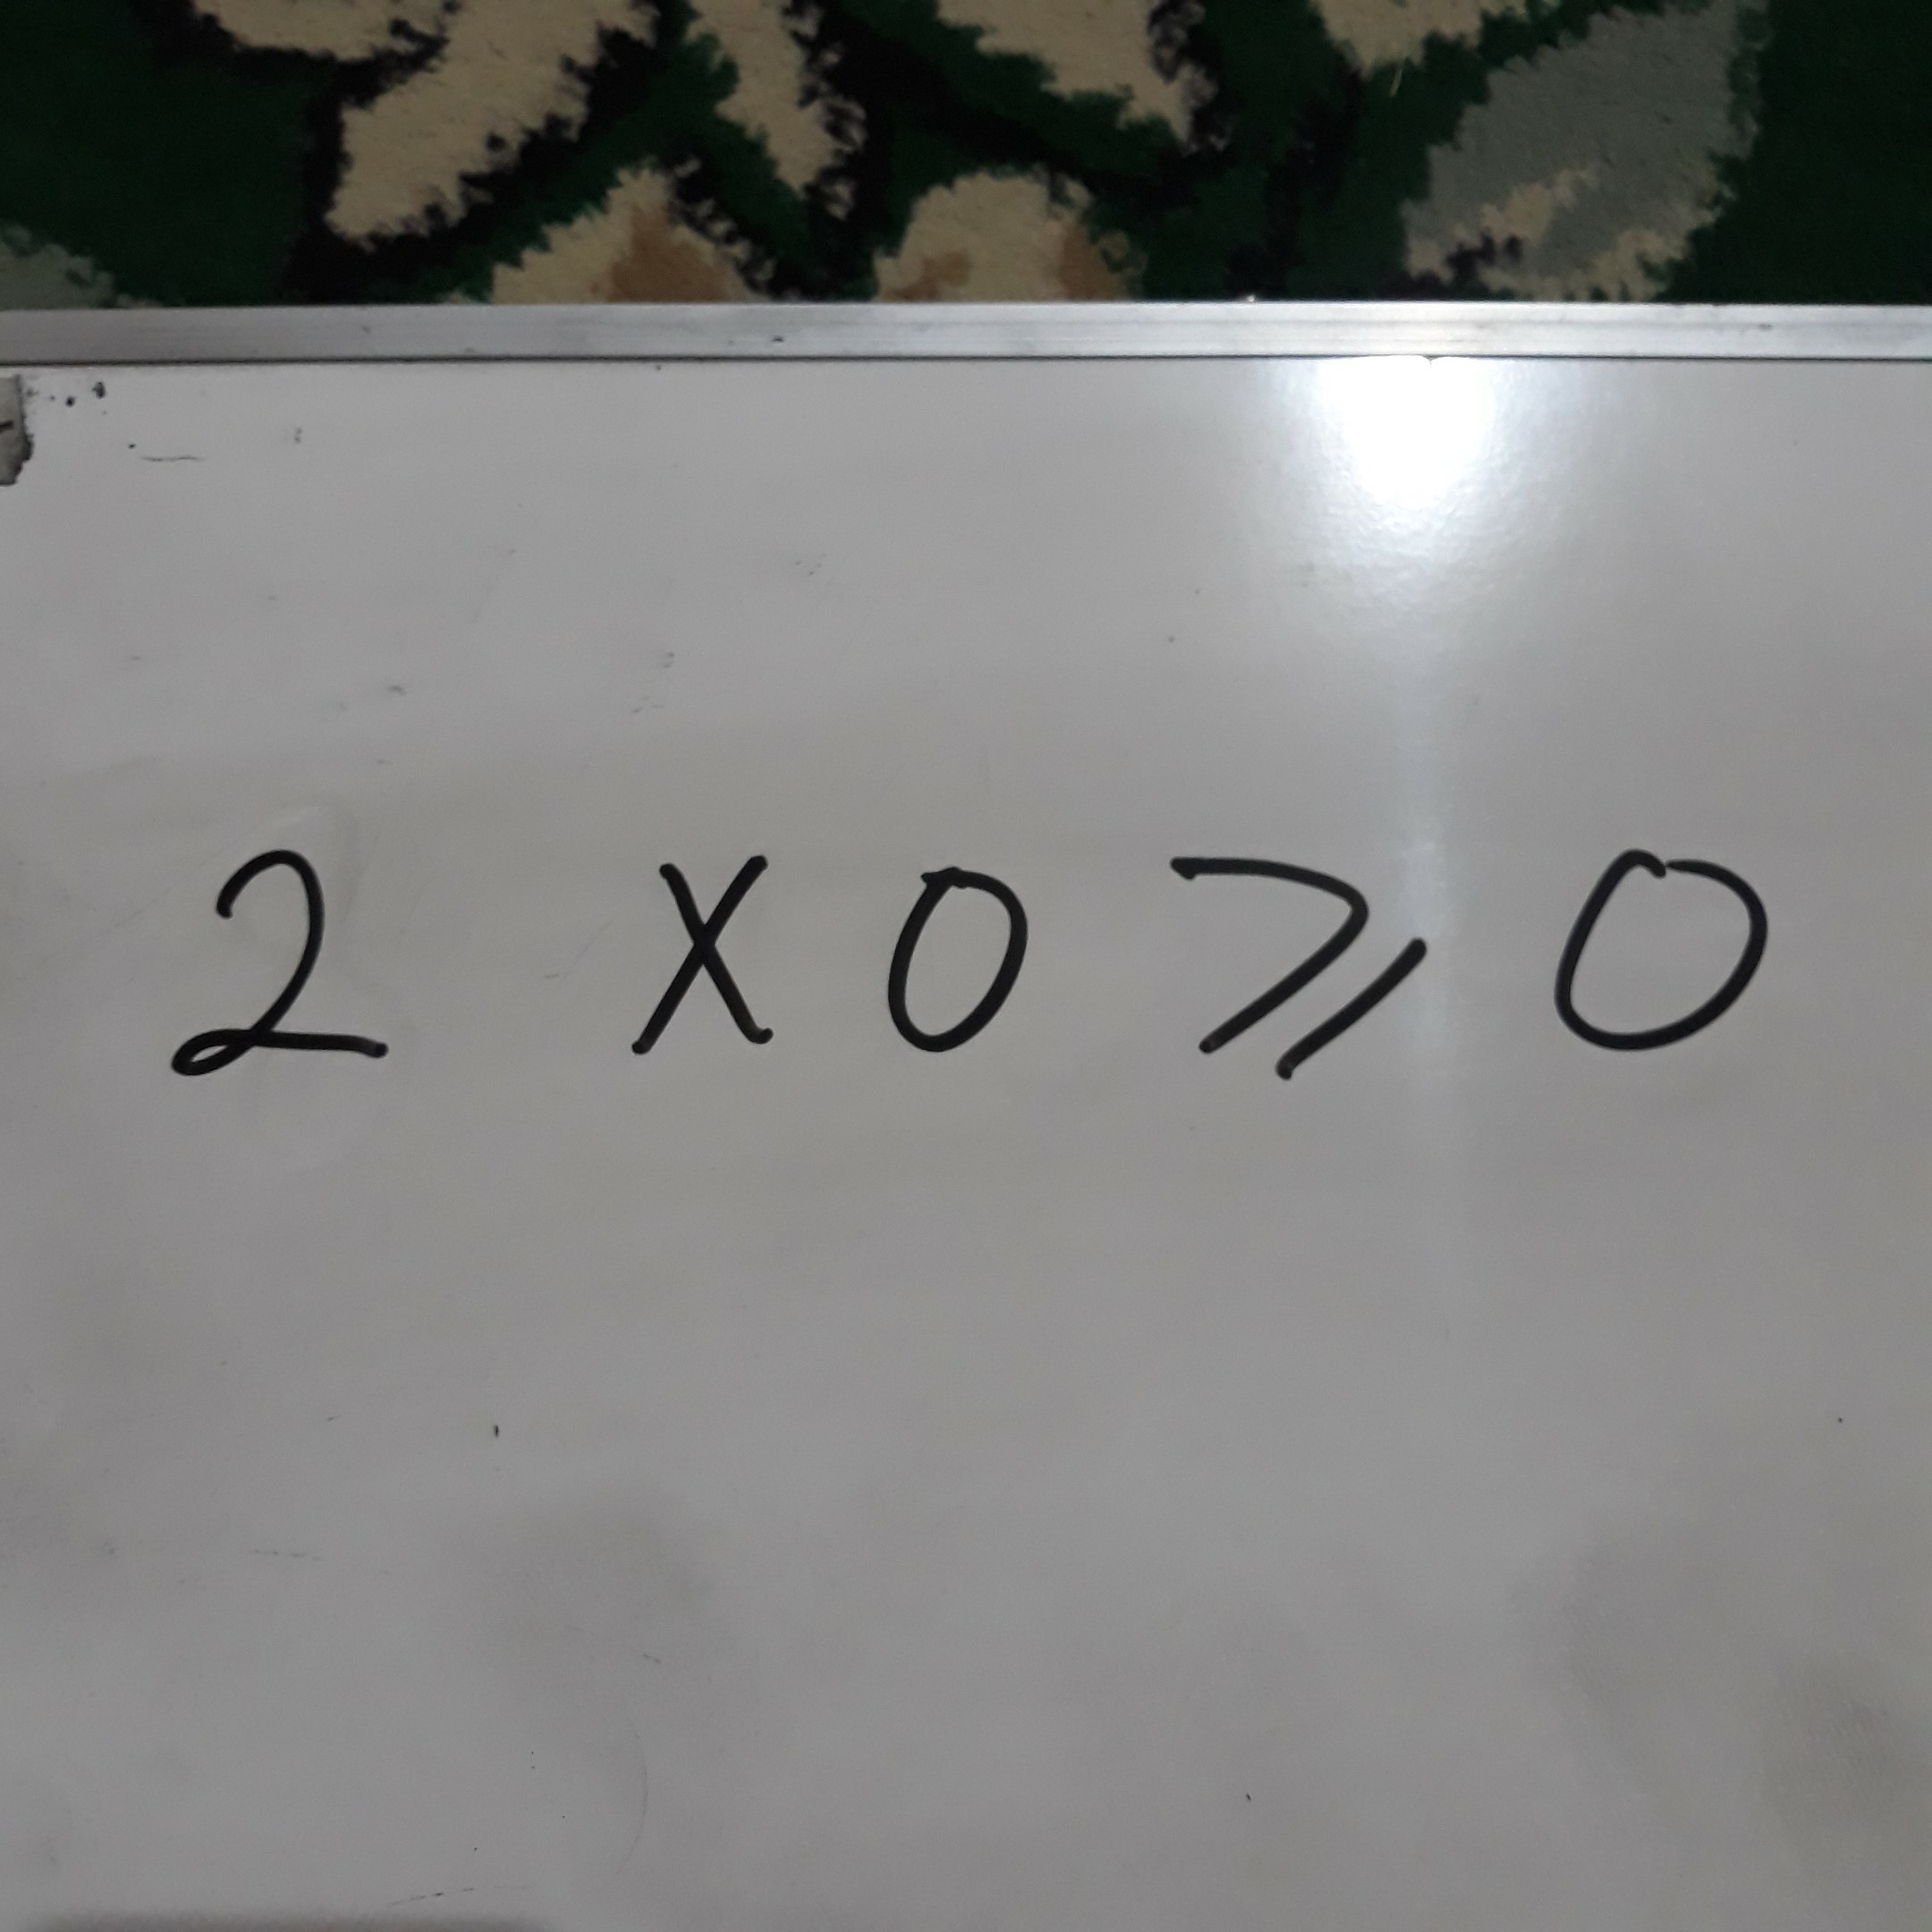 2 × 0 ⩾ 0